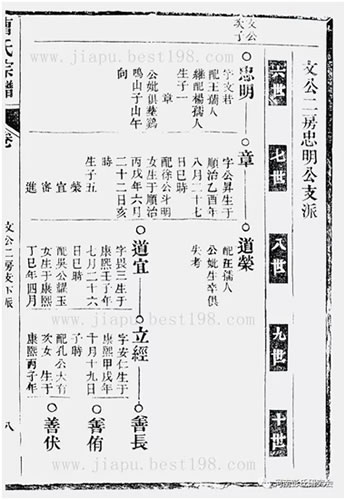 文公二房忠明公支派
六世
七世
八世
九世
十世
文公
次子
忠明
字文君
配王孺人
繼配楊孺人
生子一
章
公妣俱葬鷄
鳴山子山午
向
章
字公昇生于
順治乙酉年
八月二十七
日巳時
配徐公斗明
女生于順治
丙戌年六月
二十二日亥
時
生子五
榮 宜 審 進
道榮
配汪孺人
公妣生卒俱
失考
道宜
字畏三生于
康熙壬子年
七月二十六
日巳時
配吳公耀玉
女生于康熙
丁巳年四月
立經
字安仁生于
康熙甲戌年
十月十九日
子時
配孔公大有
次女生于
康熙丙子年
善長
善侑
善伏
氏宗譜
卷
文公二房 下派
八
www.jiapu.best198.com
www.jiapu.best198.com
www.jiapu.best198.com